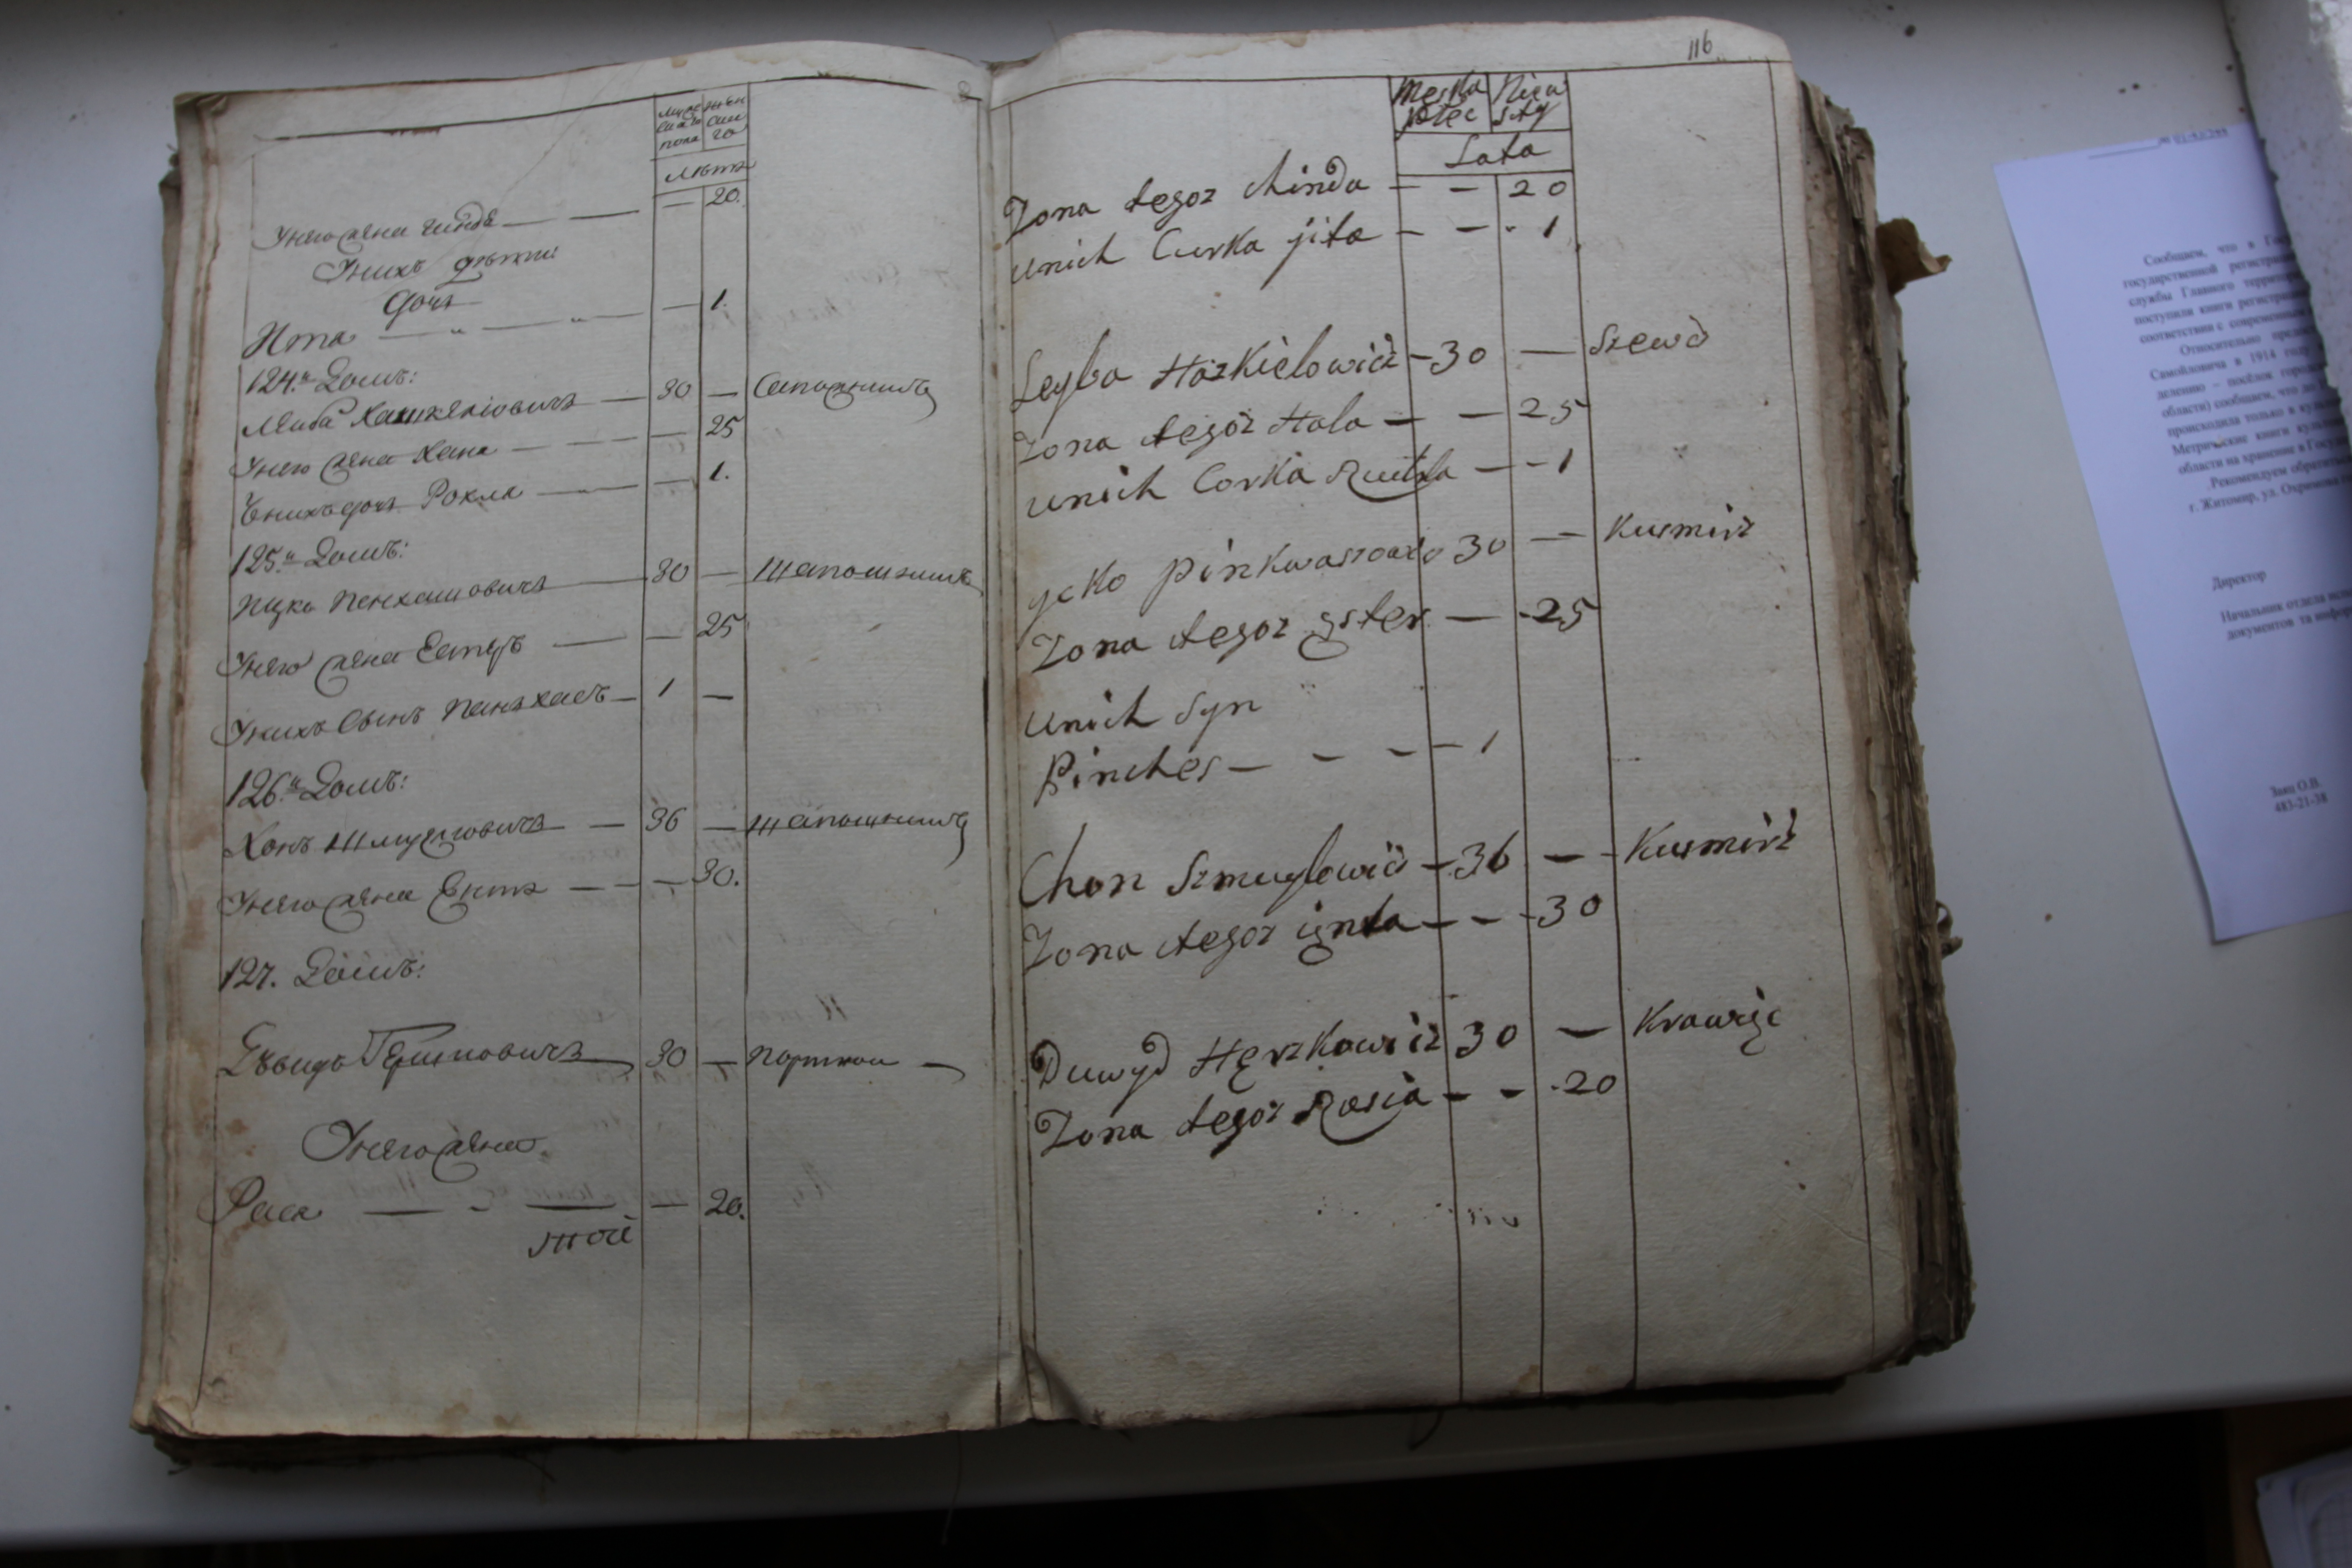 муже
ска
пола
жен
ска
го
лѣта
Унего жена Хинда — — — 20.
Унихъ дѣти:
дочь
Ита — " — " — — 1.
124.й Домъ:
Леиба Хашкелiовичъ — 30 — Сапожникъ
Унего жена Хана — — — 25
Унихъ дочь Рохла — — 1.
125.й Домъ:
Ицко Пенхасовичъ — 30 — Шапошникъ
Унего жена Естеръ — — 25
Унихъ Сынъ Пенхасъ — 1 —
126.й Домъ:
Хонъ Шмулловичъ — — 36 — Шапошникъ
Унего жена Ента — — — 30.
127. Домъ:
Давидъ Гершковичъ 30 — портной —
Унего жена
Раса — - — — 20.
116
Męska
płec
Niew
sty
Lata
Zona tegoz Chinda — — 20
unich Curka jita — — - 1
Leyba Hazkielowicz - 30 — Szewc
Zona tegoz Hala — — 25
unich Corka Ruchla — - 1
ycko Pinkwasowicz 30 — Kusmirz
Zona tegoz Ester — - 25
unich Syn
Pinches — — — — 1
Chon Szmuylowicz — 36 — - Kusmirz
Zona tegoz ienta — — - 30
Duwyd Herzkowicz 30 — Krawiec
Zona tegoz Rasia — — - 20
Сообщаем, что в
государственной регистрац
службы Главного территор
поступили книги регистрац
соответствии с современным
Относительно
Самойловича в 1914 году
делению – посёлок город
области) сообщаем, что до
происходила только в куль
Метрические книги куль
области на хранение в Госуд
Рекомендуем обратитьс
г. Житомир, ул. Охримова
Директор
Начальник отдела
документов та инфор
Заяц О.В.
483-21-38